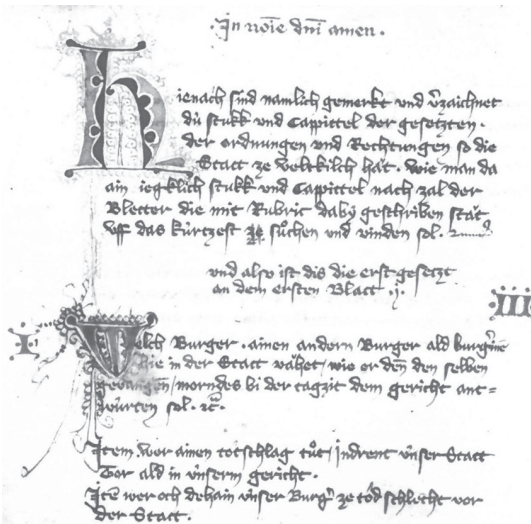 ·In noīe dn̄i amen·
Hienach sind namlich gemerkt vnd v̄zaichnet
dü stukk vnd Cappittel der gesetzten·
der ordnungen vnd Rechtungen so die
Statt ze veltkilch hāt· wie man da
ain ieglich stukk vnd Cappittel nach zal der
Bletter die mit Rubric dabÿ geschriben stāt
vff das kürtzest ze sůchen vnd vinden sol·
vnd also ist dis die erst gesetzt
an dem ersten Blatt ·ij·
III
I
Welch Burger· ainen andern Burger ald burg̍inē
hie in der Statt vāhet, wie er den̄ den selben
gevangen, morndes bi der tagzit dem gericht ant=
würten sol· rc̄·
Item wer ainen totschlag tůt, indrent vnser Statt
Tor ald in vnserm gericht·
Itē wer och dehain vnser Burg̍ ze tōd schlecht vor
der Statt·